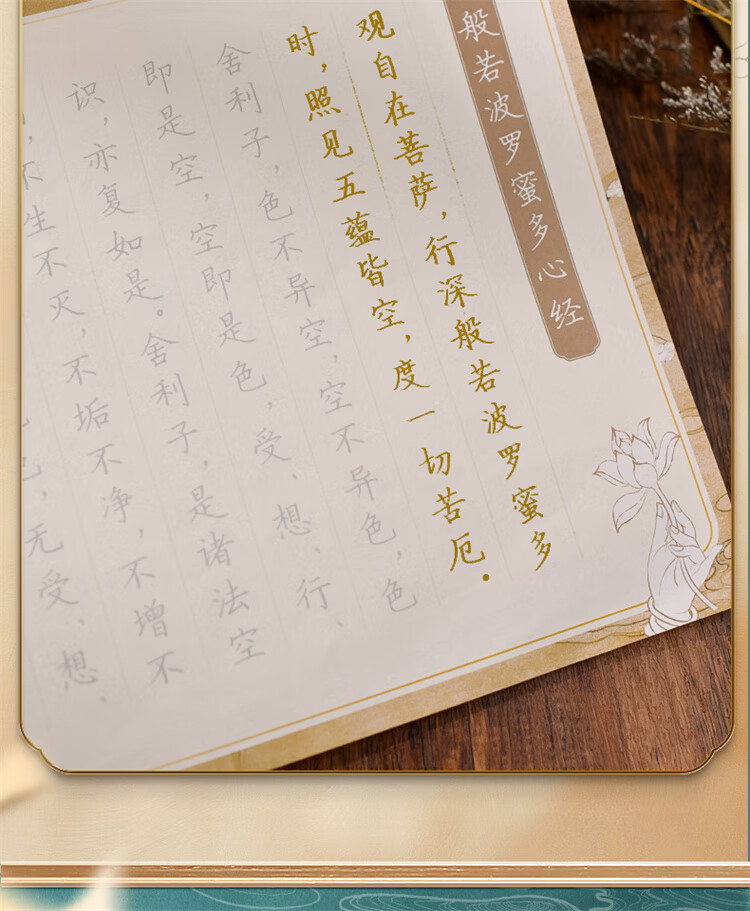 般若波罗蜜多心经
观自在菩萨，行深般若波罗蜜多
时，照见五蕴皆空，度一切苦厄.
舍利子，色不异空，空不异色，色
即是空，空即是色，受、想、行、
识，亦复如是。舍利子，是诸法空
，不生不灭，不垢不净，不增不
，无受、想、